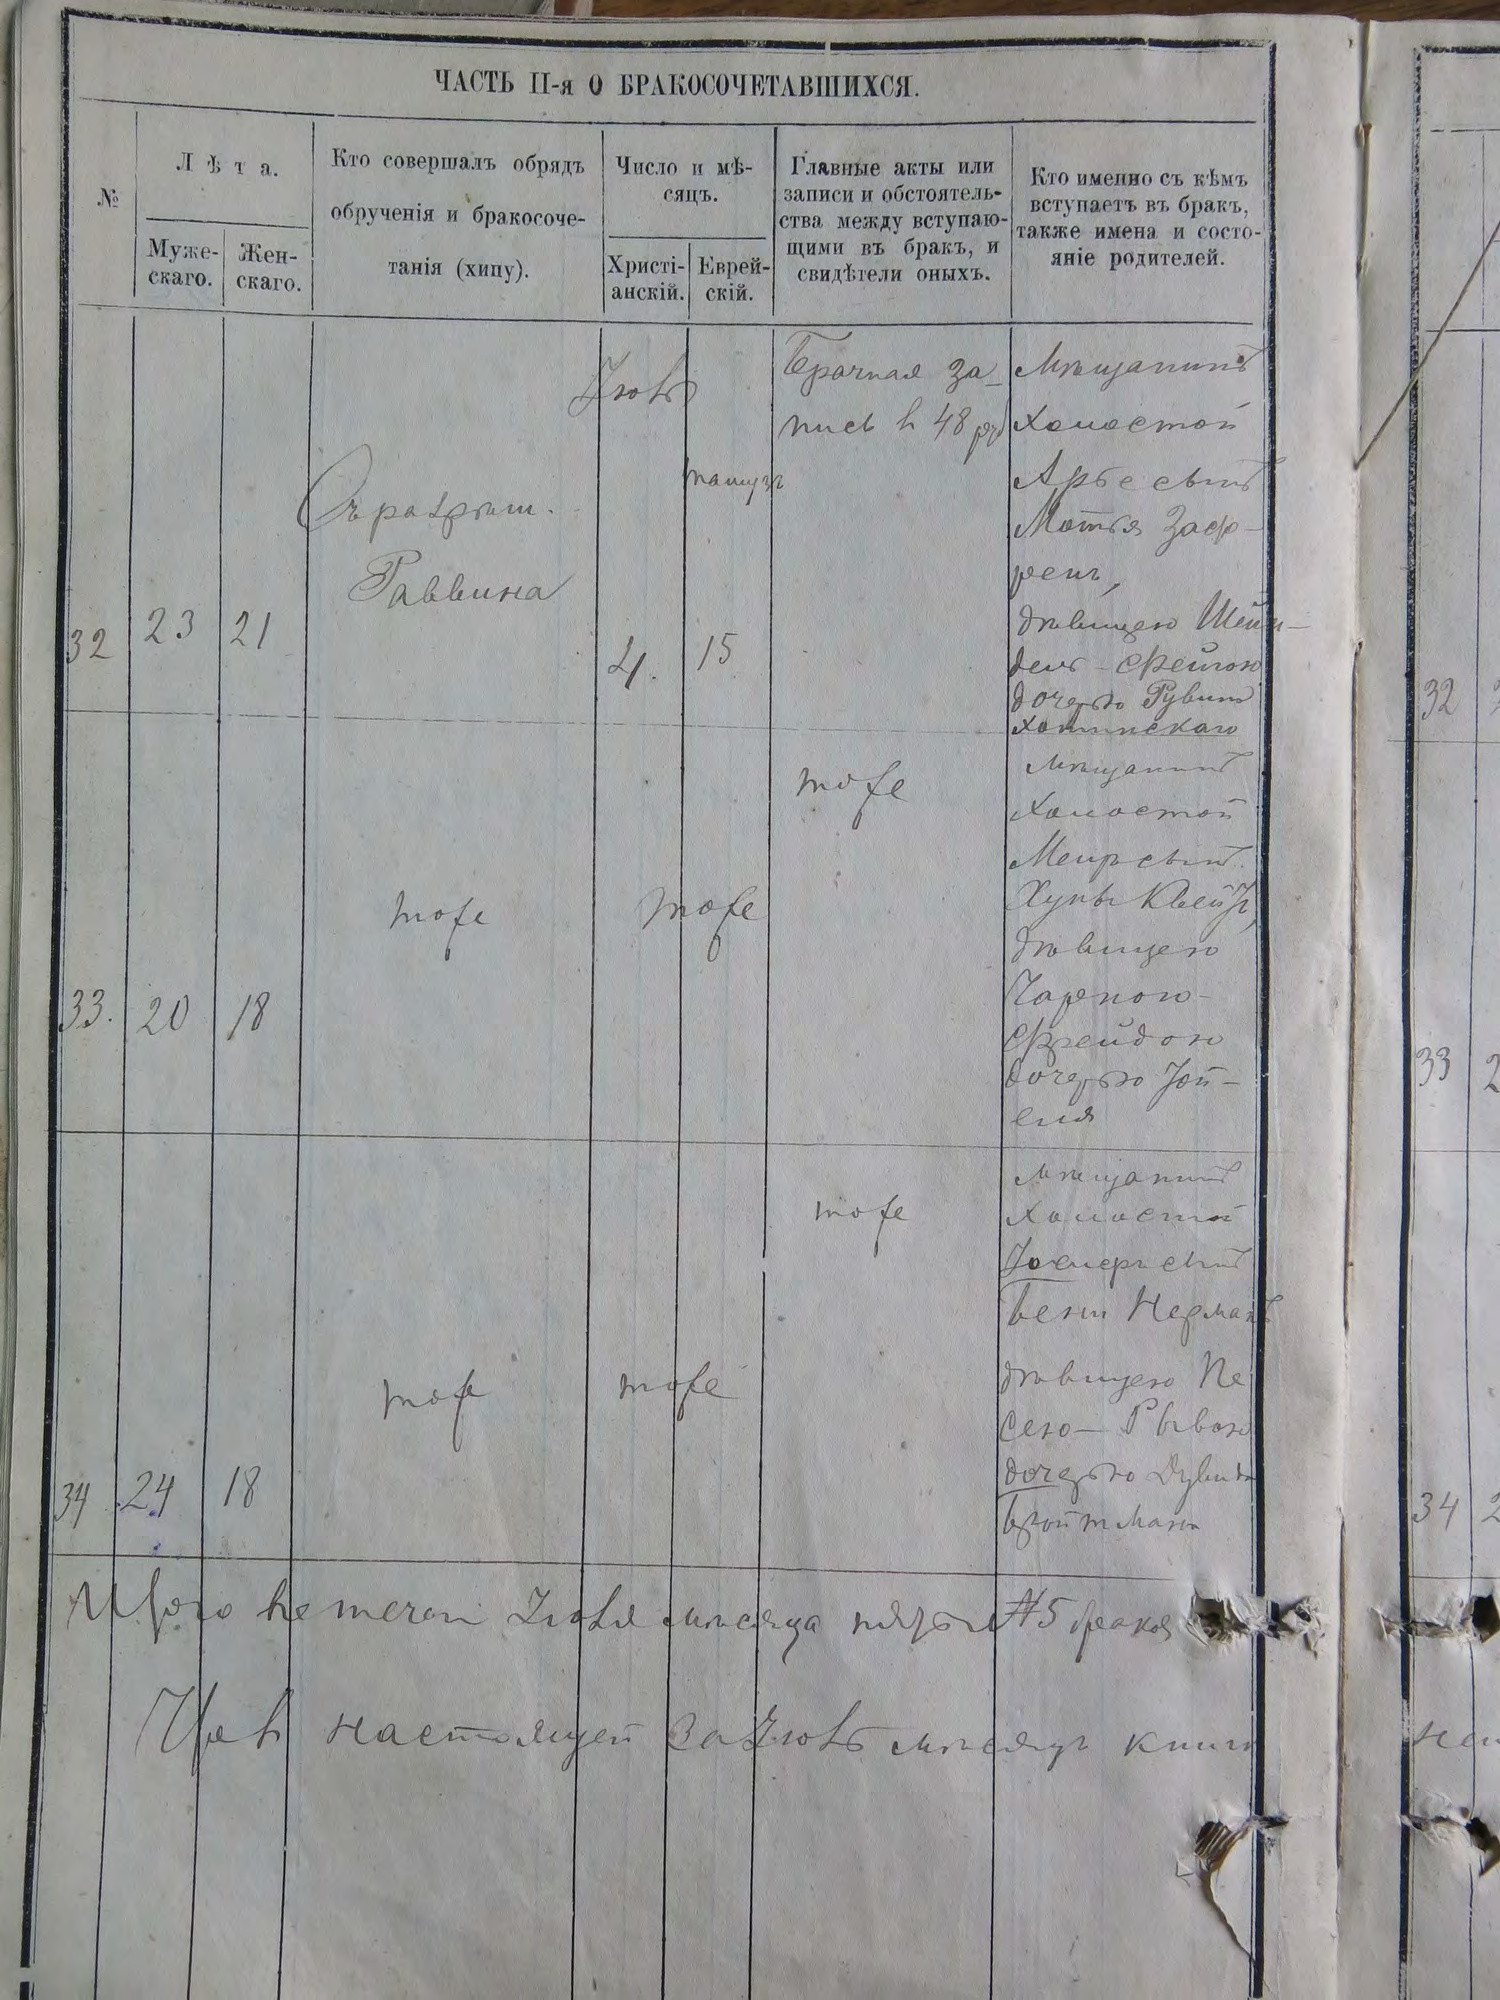 ЧАСТЬ II-я О БРАКОСОЧЕТАВШИХСЯ.
№
Лѣта.
Муже-
скаго.
Жен-
скаго.
Кто совершалъ обрядъ
обрученія и бракосоче-
танія (хипу).
Число и мѣ-
сяцъ.
Христі-
анскій.
Еврей-
скій.
Главные акты или
записи и обстоятель-
ства между вступаю-
щими въ бракъ, и
свидѣтели оныхъ.
Кто именно съ кѣмъ
вступаетъ въ бракъ,
также имена и состо-
яніе родителей.
32
23
21
Съ разрѣш.
Раввина
Іюль
4.
тамузъ
15
Брачная за-
пись в 48 руб
Мѣщанинъ
холостой
Арье сынъ
Мотья
дѣвицею Шейн-
дель-Фейгою
дочерью Рувина
Хотинскаго
33.
20
18
тоже
тоже
тоже
Мѣщанинъ
Холостой
Меиръ сынъ
дѣвицею
Чарною-
Фрейдою
дочерью
34
24
18
тоже
тоже
тоже
мѣщанинъ
холостой
сынъ
Герман
дѣвицею Пе
сею-Рывкою
дочерью Дувида
Бройтмана
Итого въ течен Іюля мѣсяца пять №5 браков
Чрев настоящей За Іюль мѣсяцъ книги
32
33
2
34
2